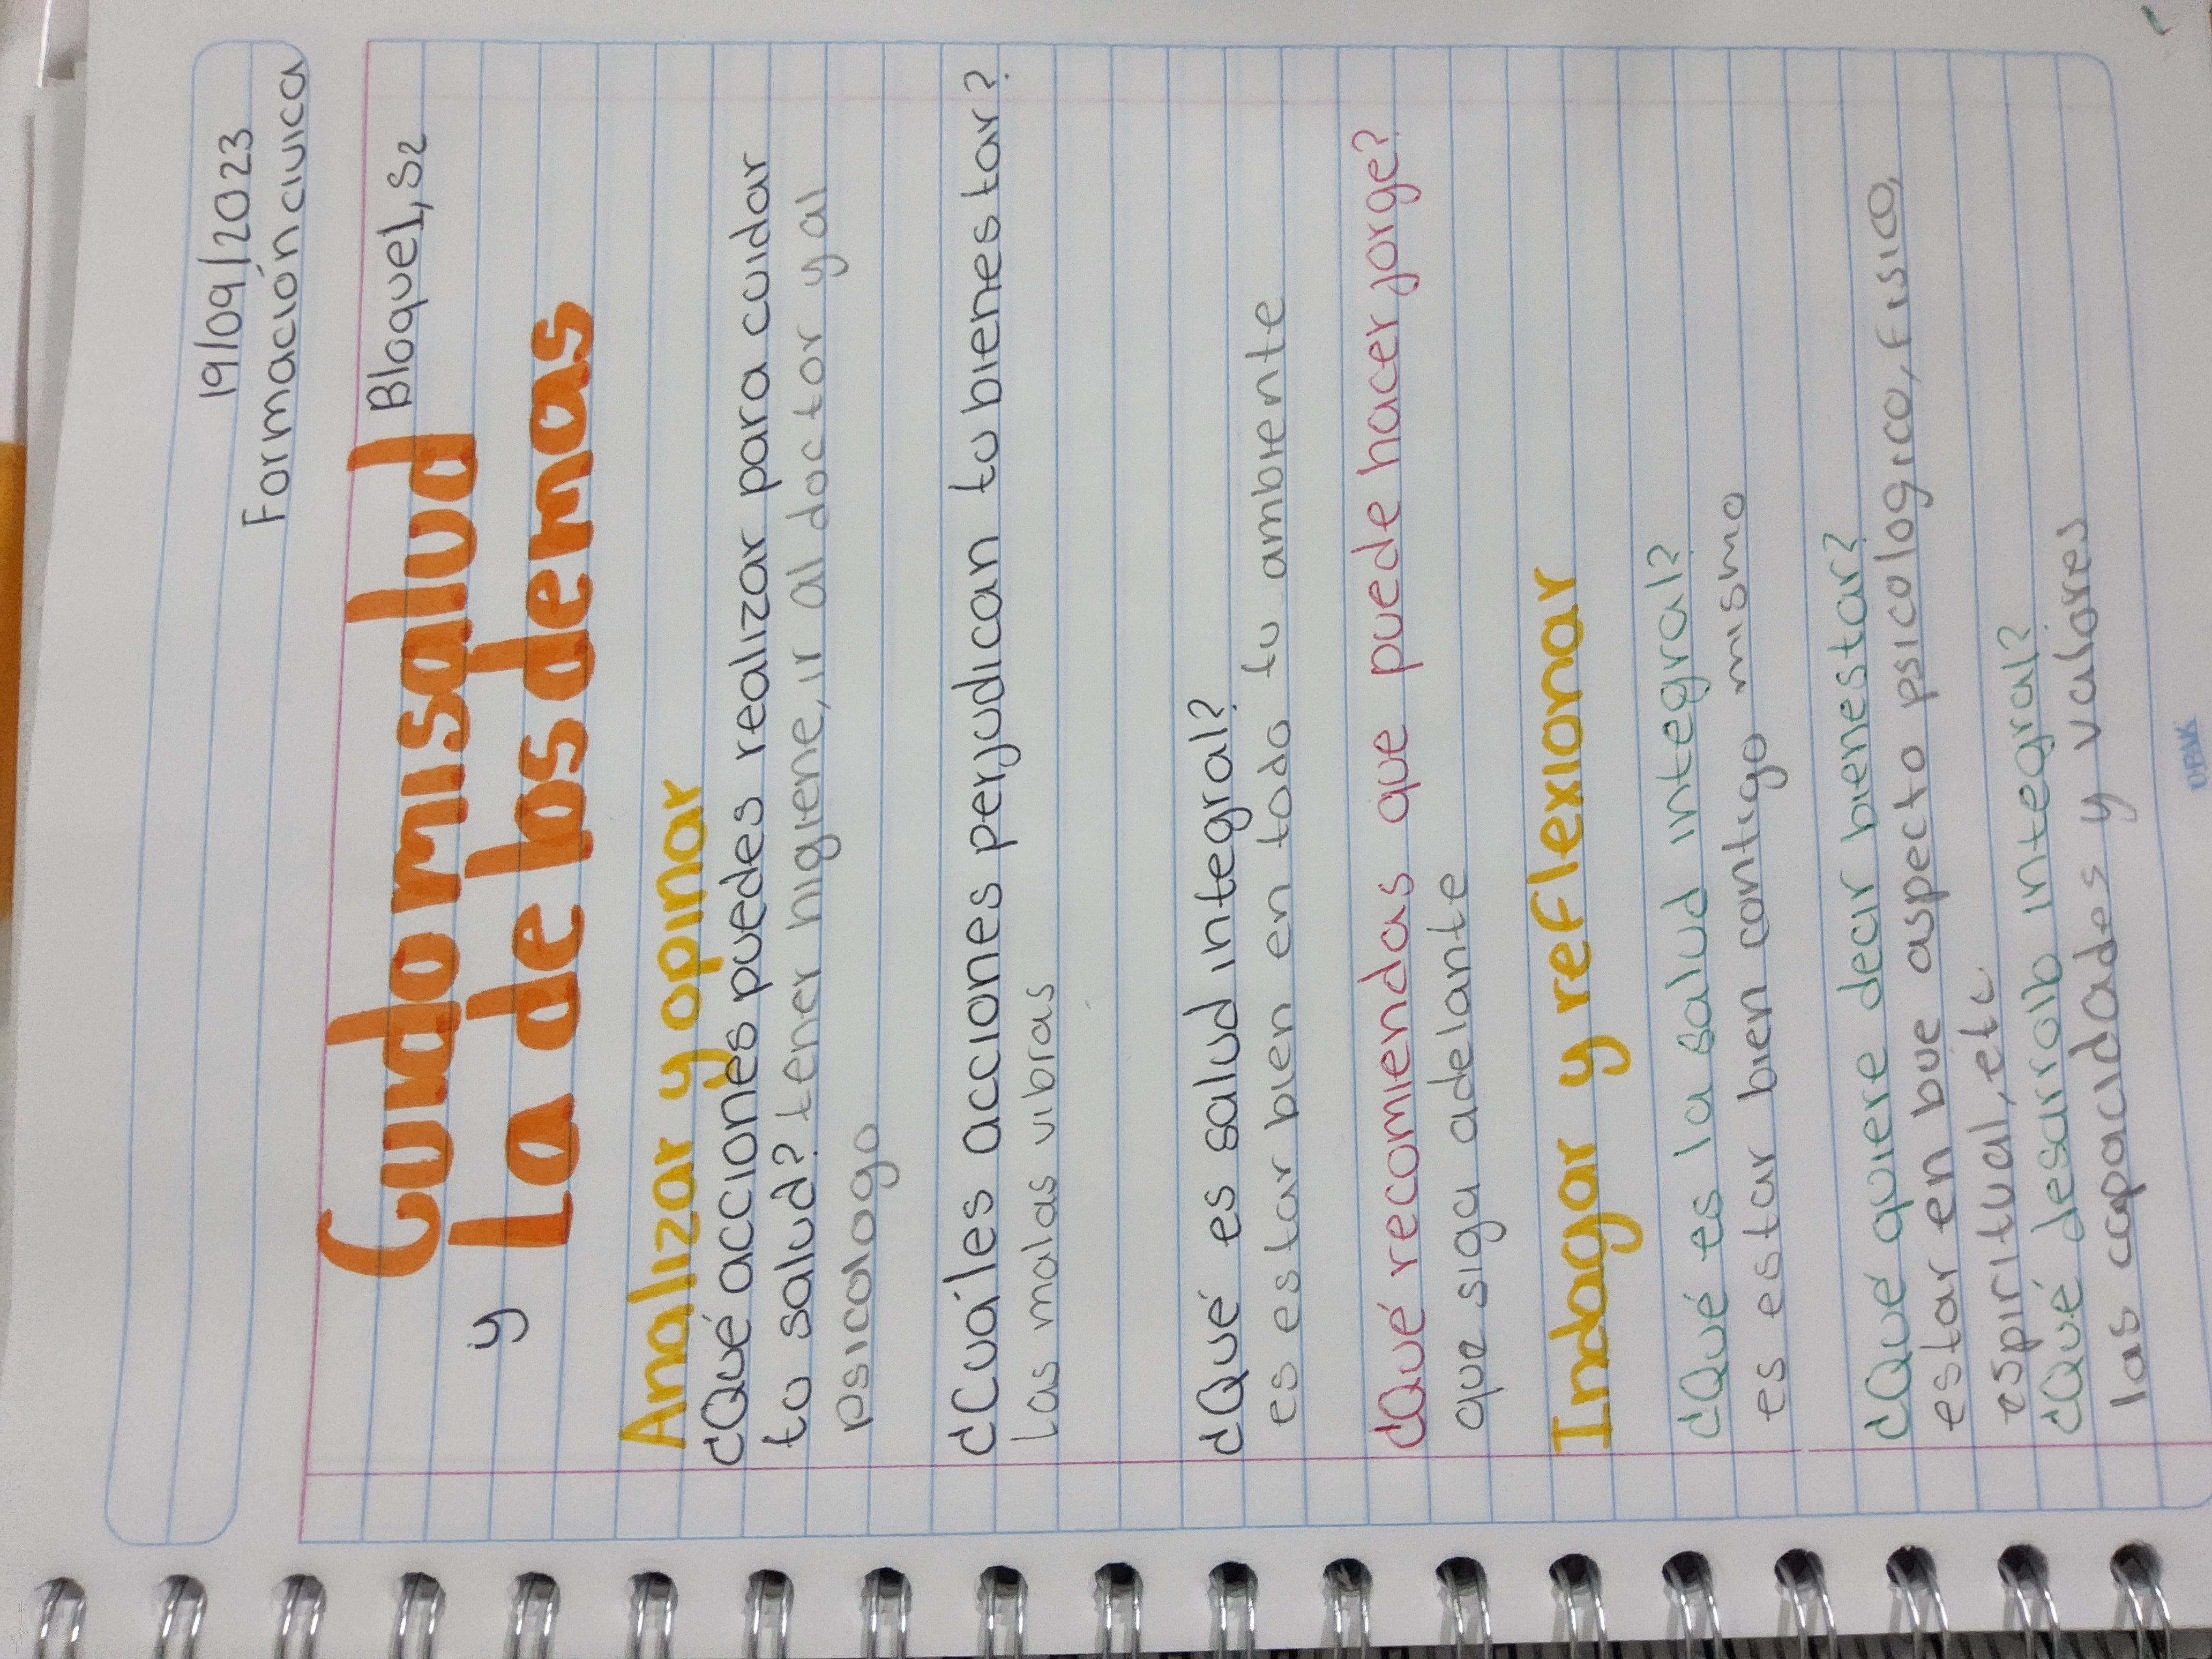 19/09/2023
Formación civica
Cuido mi salud Bloque1, S2
y La de los demas
Analizar y opinar
¿Qué acciones puedes realizar para cuidar
tu salud? tener higiene, ir al doctor y al
psicologo
¿Cuáles acciones perjudican tu bienestar?
Las malas vibras
¿Qué es salud integral?
es estar bien en todo tu ambiente
¿Qué recomiendas que puede hacer jorge?
que siga adelante
Indagar y reflexionar
¿Qué es la salud integral?
es estar bien contigo mismo
¿Qué quiere decir bienestar?
estar en bue aspecto psicologico, Fisico,
espiritual, etc
¿Qué desarrollo integral?
las capacidades y valores